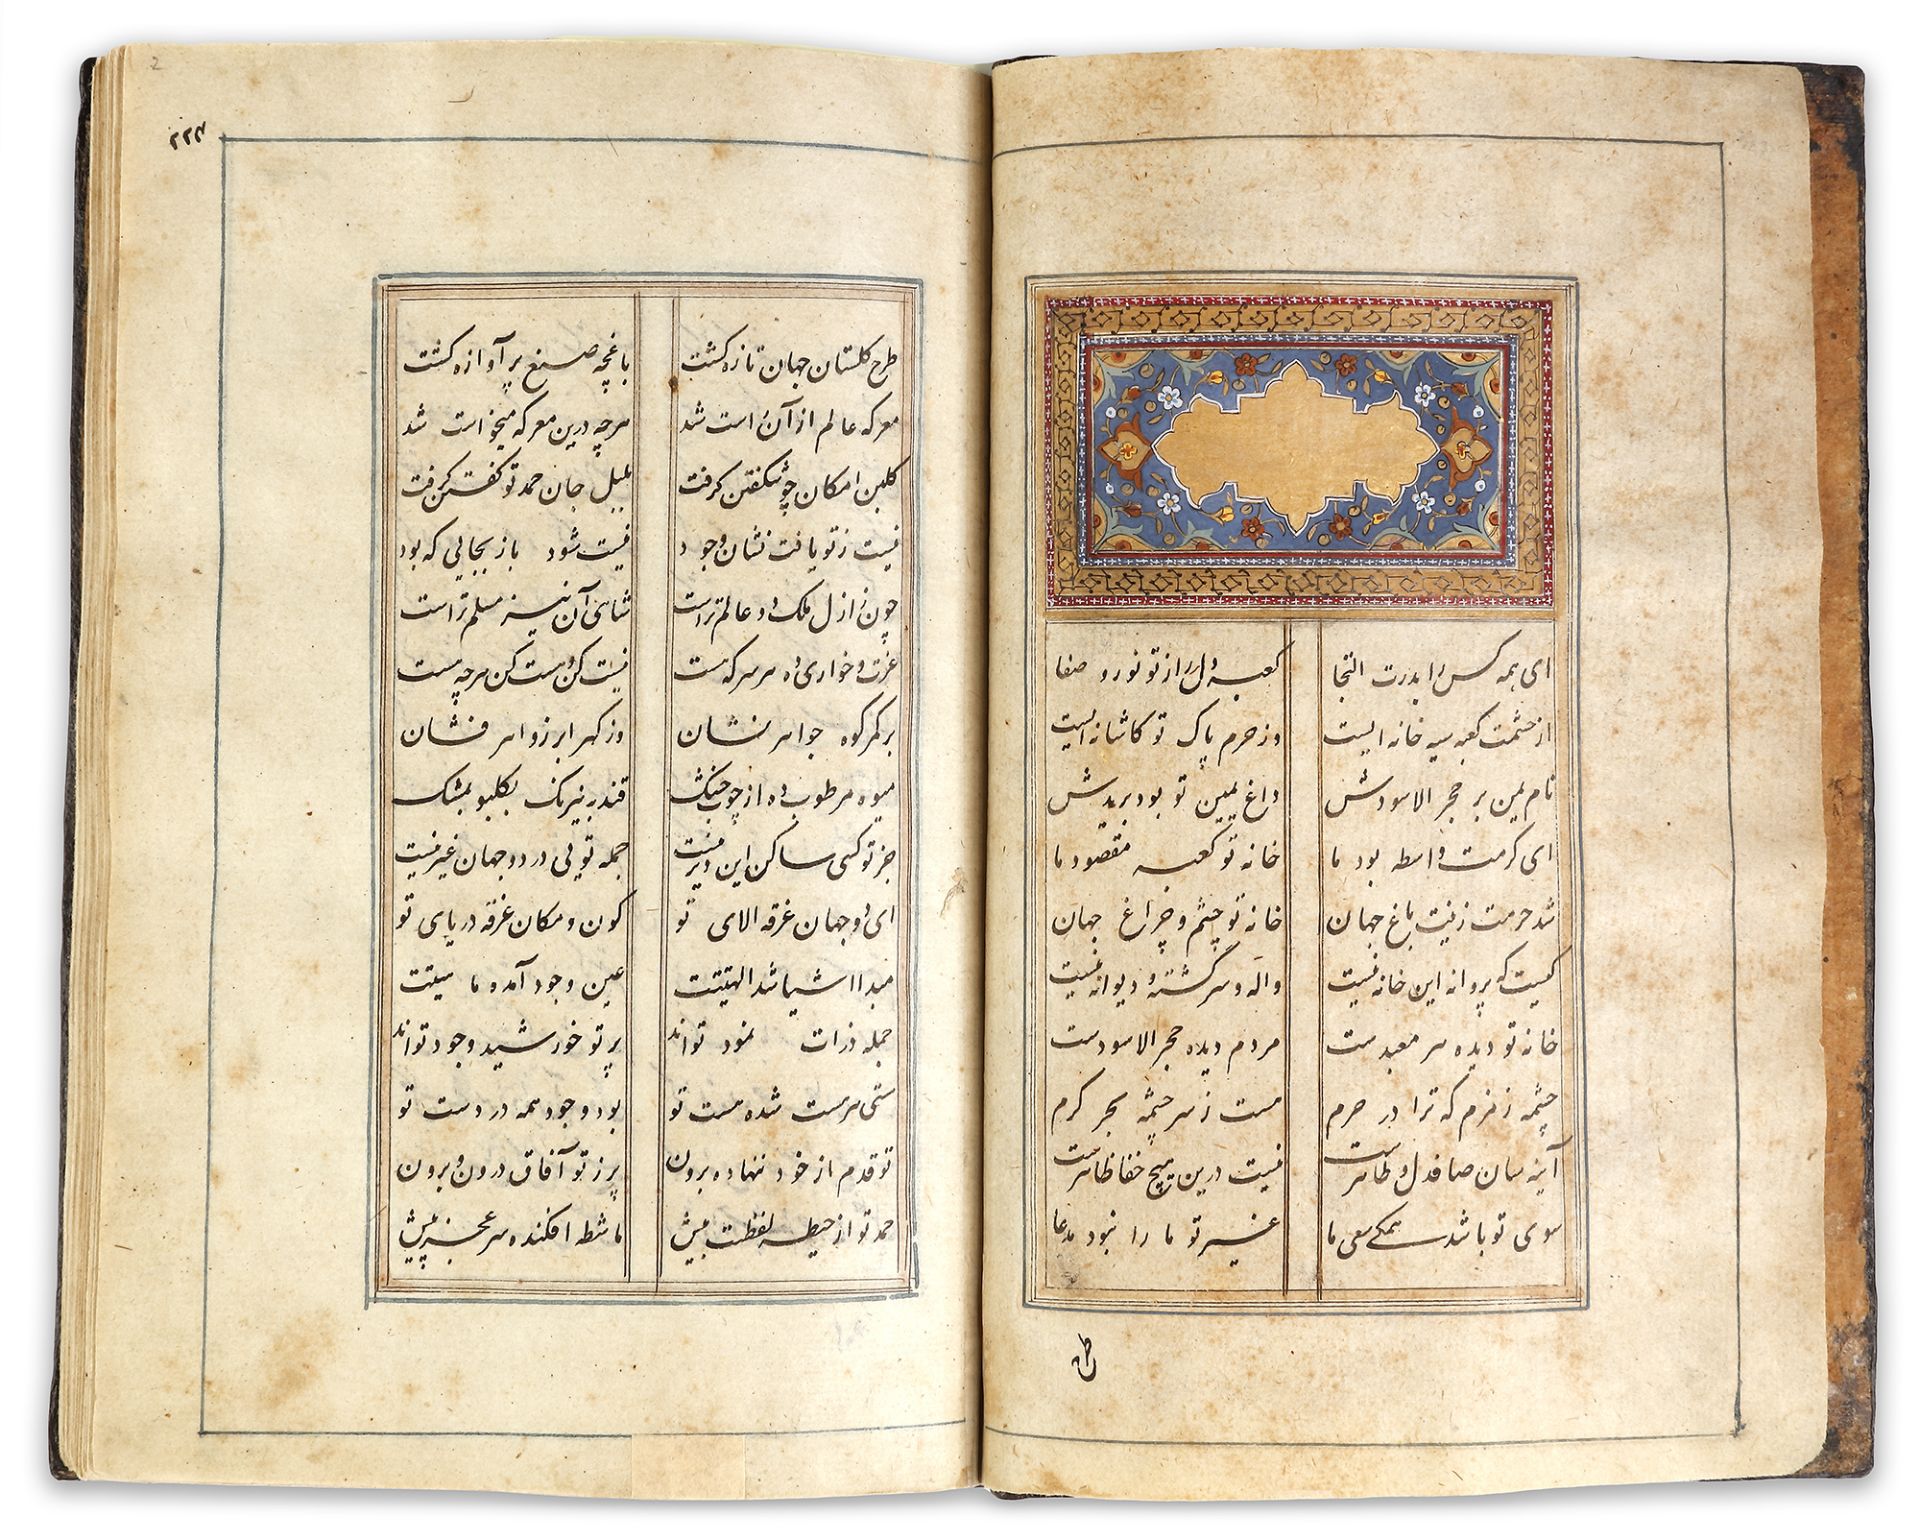 ای همه کس را بدرت التجا
کعبه دل را از تو نور و صفا
از حشمت کعبه سیه خانه ایست
وز حرم پاک تو کاشانه ایست
نام یمین بر حجر الاسودش
داغ یمین تو بود بریدش
ای کرمت واسطه بود ما
خانه تو کعبه مقصود ما
شد حرمت زینت باغ جهان
خانه تو چشم و چراغ جهان
کیست که پروانه این خانه نیست
واله و سرگشته و دیوانه نیست
خانه تو دیده هر معبدست
مردم دیده حجر الاسودست
چشمه زمزم که ترا در حرم
هست ز سرچشمه بحر کرم
آینه سان صافدل و طاهرست
نیست درین هیچ خفا ظاهرست
سوی تو باشد همکی سعی ما
غیر تو ما را نبود مدعا
طرح
۲۲۴
2
طرح کلستان جهان تازه کشت
باغچه صنع پر آوازه کشت
معرکه عالم از آن است شد
هرچه درین معرکه میخواست شد
کلبن امکان چو شکفتن کرفت
بلبل جان حمد تو کفتن کرفت
نیست ز تو یافت نشان وجود
نیست شود باز بجایی که بود
چون ز ازل ملک دو عالم تراست
شاهی آن نیز مسلم تراست
عزت و خواری ده هر سر که هست
نیست کن و هست کن هرچه هست
بر کمر کوه جواهر نشان
وز کهر ابر زواهر فشان
میوه مرطوب ده از چوب خشک
قند به نیرنک بکلبو بمشک
جز تو کسی ساکن این دیر نیست
جمله تویی در دو جهان غیر نیست
ای دو جهان غرقه الای تو
کون و مکان غرقه دریای تو
مبدا اشیا شد الهیتت
عین وجود آمده ماهیتت
جمله ذرات نمود تواند
پرتو خورشید وجود تواند
هستی هر هست شده هست تو
بود وجود همه در دست تو
تو قدم از خود ننهاده برون
پر ز تو آفاق درون و برون
حمد تو از حیطه لفظست بیش
ناشطه افکنده سر عجز پیش